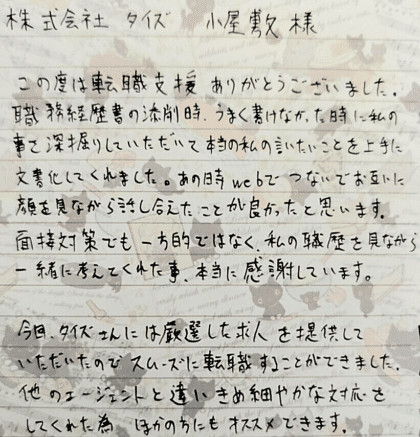 株式会社 タイズ 小屋敷 様
この度は転職支援 ありがとうございました。
職務経歴書の添削時、うまく書けなかった時に私の
事を深掘りしていただいて本当の私の言いたいことを上手に
文書化してくれました。あの時webでつないでお互いに
顔を見ながら話し合えたことが良かったと思います。
面接対策でも一方的ではなく、私の職歴を見ながら
一緒に考えてくれた事、本当に感謝しています。
今回、タイズさんには厳選した求人を提供して
いただいたのでスムーズに転職することができました。
他のエージェントと違いきめ細やかな対応を
してくれた為 ほかの方にもオススメできます。